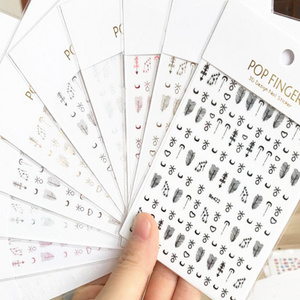 POP FINGER
3D Design Nail Sticker
POP